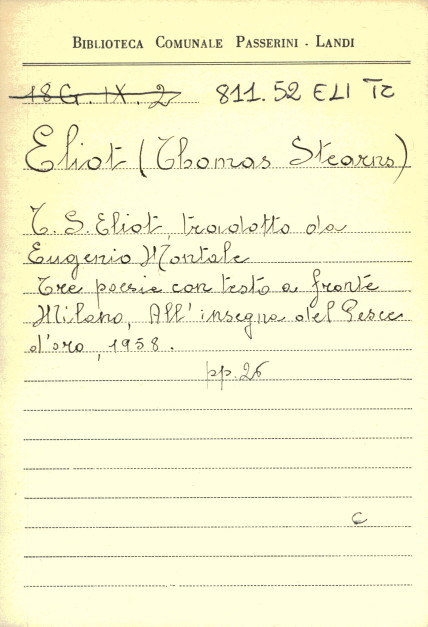 BIBLIOTECA COMUNALE PASSERINI - LANDI
18G. IX. 2 811.52 ELI Tc
Eliot (Thomas Stearns)
T. S. Eliot tradotto da
Eugenio Montale
Tre poesie con testo a fronte
Milano, All' insegna del Pesce
d'oro, 1958.
pp. 26
C